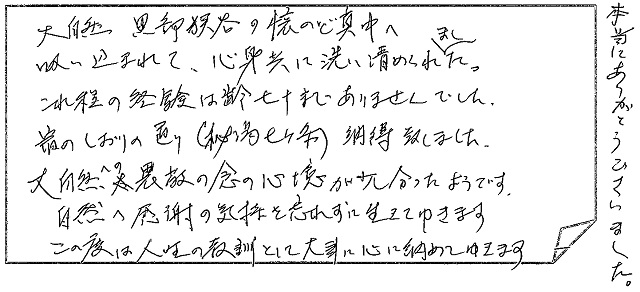 大自然 黒部峡谷の懐のど真中へ
吸い込まれて、心身共に洗い清められました。
これ程の経験は齢七十までありませんでした。
宿のしおりの通り(秘湯七ケ条)納得致しました。
大自然への畏敬の念の心境が少し分ったようです。
自然へ感謝の気持を忘れずに生きてゆきます
この度は人生の教訓として大事に心に納めてゆきます
本当にありがとうございました。